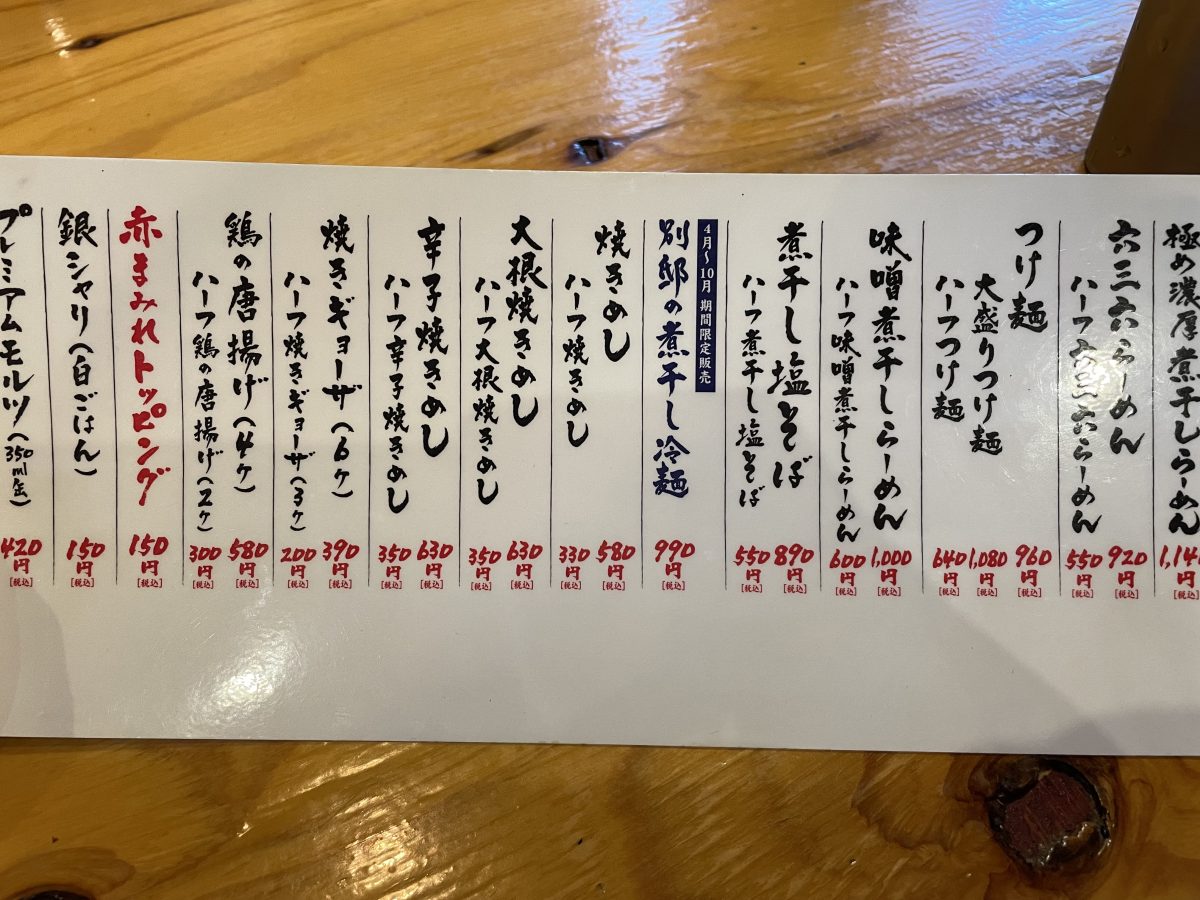 極め濃厚煮干しらーめん 1,14 円 [税込]
六三六らーめん 920円 [税込]
ハーフ六三六らーめん 550円 [税込]
つけ麺 960円 [税込]
大盛りつけ麺 1,080円 [税込]
ハーフつけ麺 640円 [税込]
味噌煮干しらーめん 1,000円 [税込]
ハーフ味噌煮干しらーめん 600円 [税込]
煮干し塩そば 890円 [税込]
ハーフ煮干し塩そば 550円 [税込]
4月〜10月 期間限定販売
別邸の煮干し冷麺 990円 [税込]
焼きめし 580円 [税込]
ハーフ焼きめし 330円 [税込]
大根焼きめし 630円 [税込]
ハーフ大根焼きめし 350円 [税込]
辛子焼きめし 630円 [税込]
ハーフ辛子焼きめし 350円 [税込]
焼きギョーザ(6ヶ) 390円 [税込]
ハーフ焼きギョーザ(3ヶ) 200円 [税込]
鶏の唐揚げ(4ヶ) 580円 [税込]
ハーフ鶏の唐揚げ(2ヶ) 300円 [税込]
赤まみれトッピング 150円 [税込]
銀シャリ(白ごはん) 150円 [税込]
プレミアムモルツ(350ml缶) 420円 [税込]